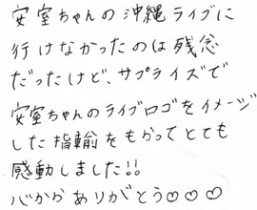 安室ちゃんの沖縄ライブに
行けなかったのは残念
だったけど、サプライズで
安室ちゃんのライブロゴをイメージ
した指輪をもらってとても
感動しました!!
心からありがとう♡♡♡